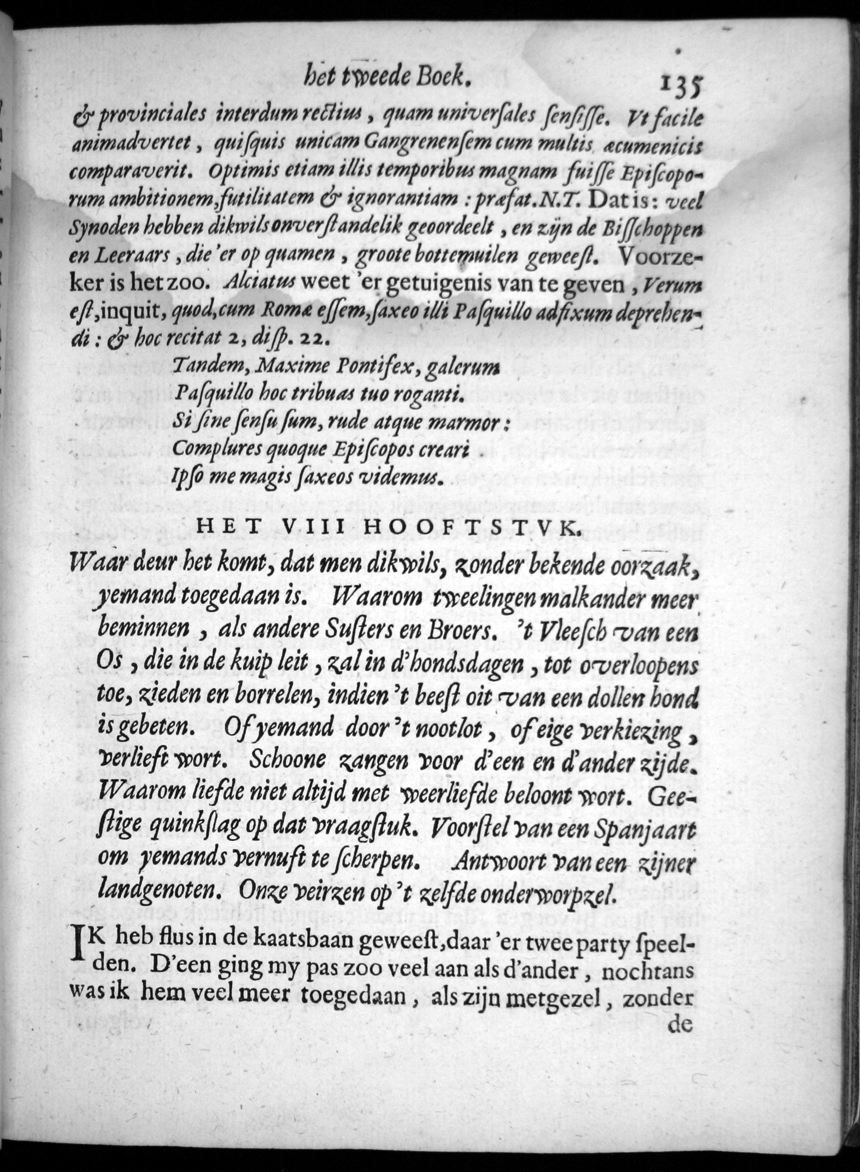 het tweede Boek. 135
& provinciales interdum rectius, quam universales sensisse. Vt facile
animadvertet, quisquis unicam Gangrenensem cum multis æcumenicis
comparaverit. Optimis etiam illis temporibus magnam fuisse Episcopo-
rum ambitionem, futilitatem & ignorantiam: præfat. N.T. Dat is: veel
Synoden hebben dikwils onverstandelik geoordeelt, en zijn de Bisschoppen
en Leeraars, die 'er op quamen, groote bottemuilen geweest. Voorze-
ker is het zoo. Alciatus weet 'er getuigenis van te geven, Verum
est, inquit, quod, cum Romæ essem, saxeo illi Pasquillo adfixum deprehen-
di: & hoc recitat 2, disp. 22.
Tandem, Maxime Pontifex, galerum
Pasquillo hoc tribuas tuo roganti.
Si sine sensu sum, rude atque marmor:
Complures quoque Episcopos creari
Ipso me magis saxeos videmus.
HET VIII HOOFTSTVK.
Waar deur het komt, dat men dikwils, zonder bekende oorzaak,
yemand toegedaan is. Waarom tweelingen malkander meer
beminnen, als andere Susters en Broers. 't Vleesch van een
Os, die in de kuip leit, zal in d'hondsdagen, tot overloopens
toe, zieden en borrelen, indien 't beest oit van een dollen hond
is gebeten. Of yemand door 't nootlot, of eige verkiezing,
verlieft wort. Schoone zangen voor d'een en d'ander zijde.
Waarom liefde niet altijd met weerliefde beloont wort. Gee-
stige quinkslag op dat vraagstuk. Voorstel van een Spanjaart
om yemands vernuft te scherpen. Antwoort van een zijner
landgenoten. Onze veirzen op 't zelfde onderworpzel.
IK heb flus in de kaatsbaan geweest, daar 'er twee party speel-
den. D'een ging my pas zoo veel aan als d'ander, nochtans
was ik hem veel meer toegedaan, als zijn metgezel, zonder
de